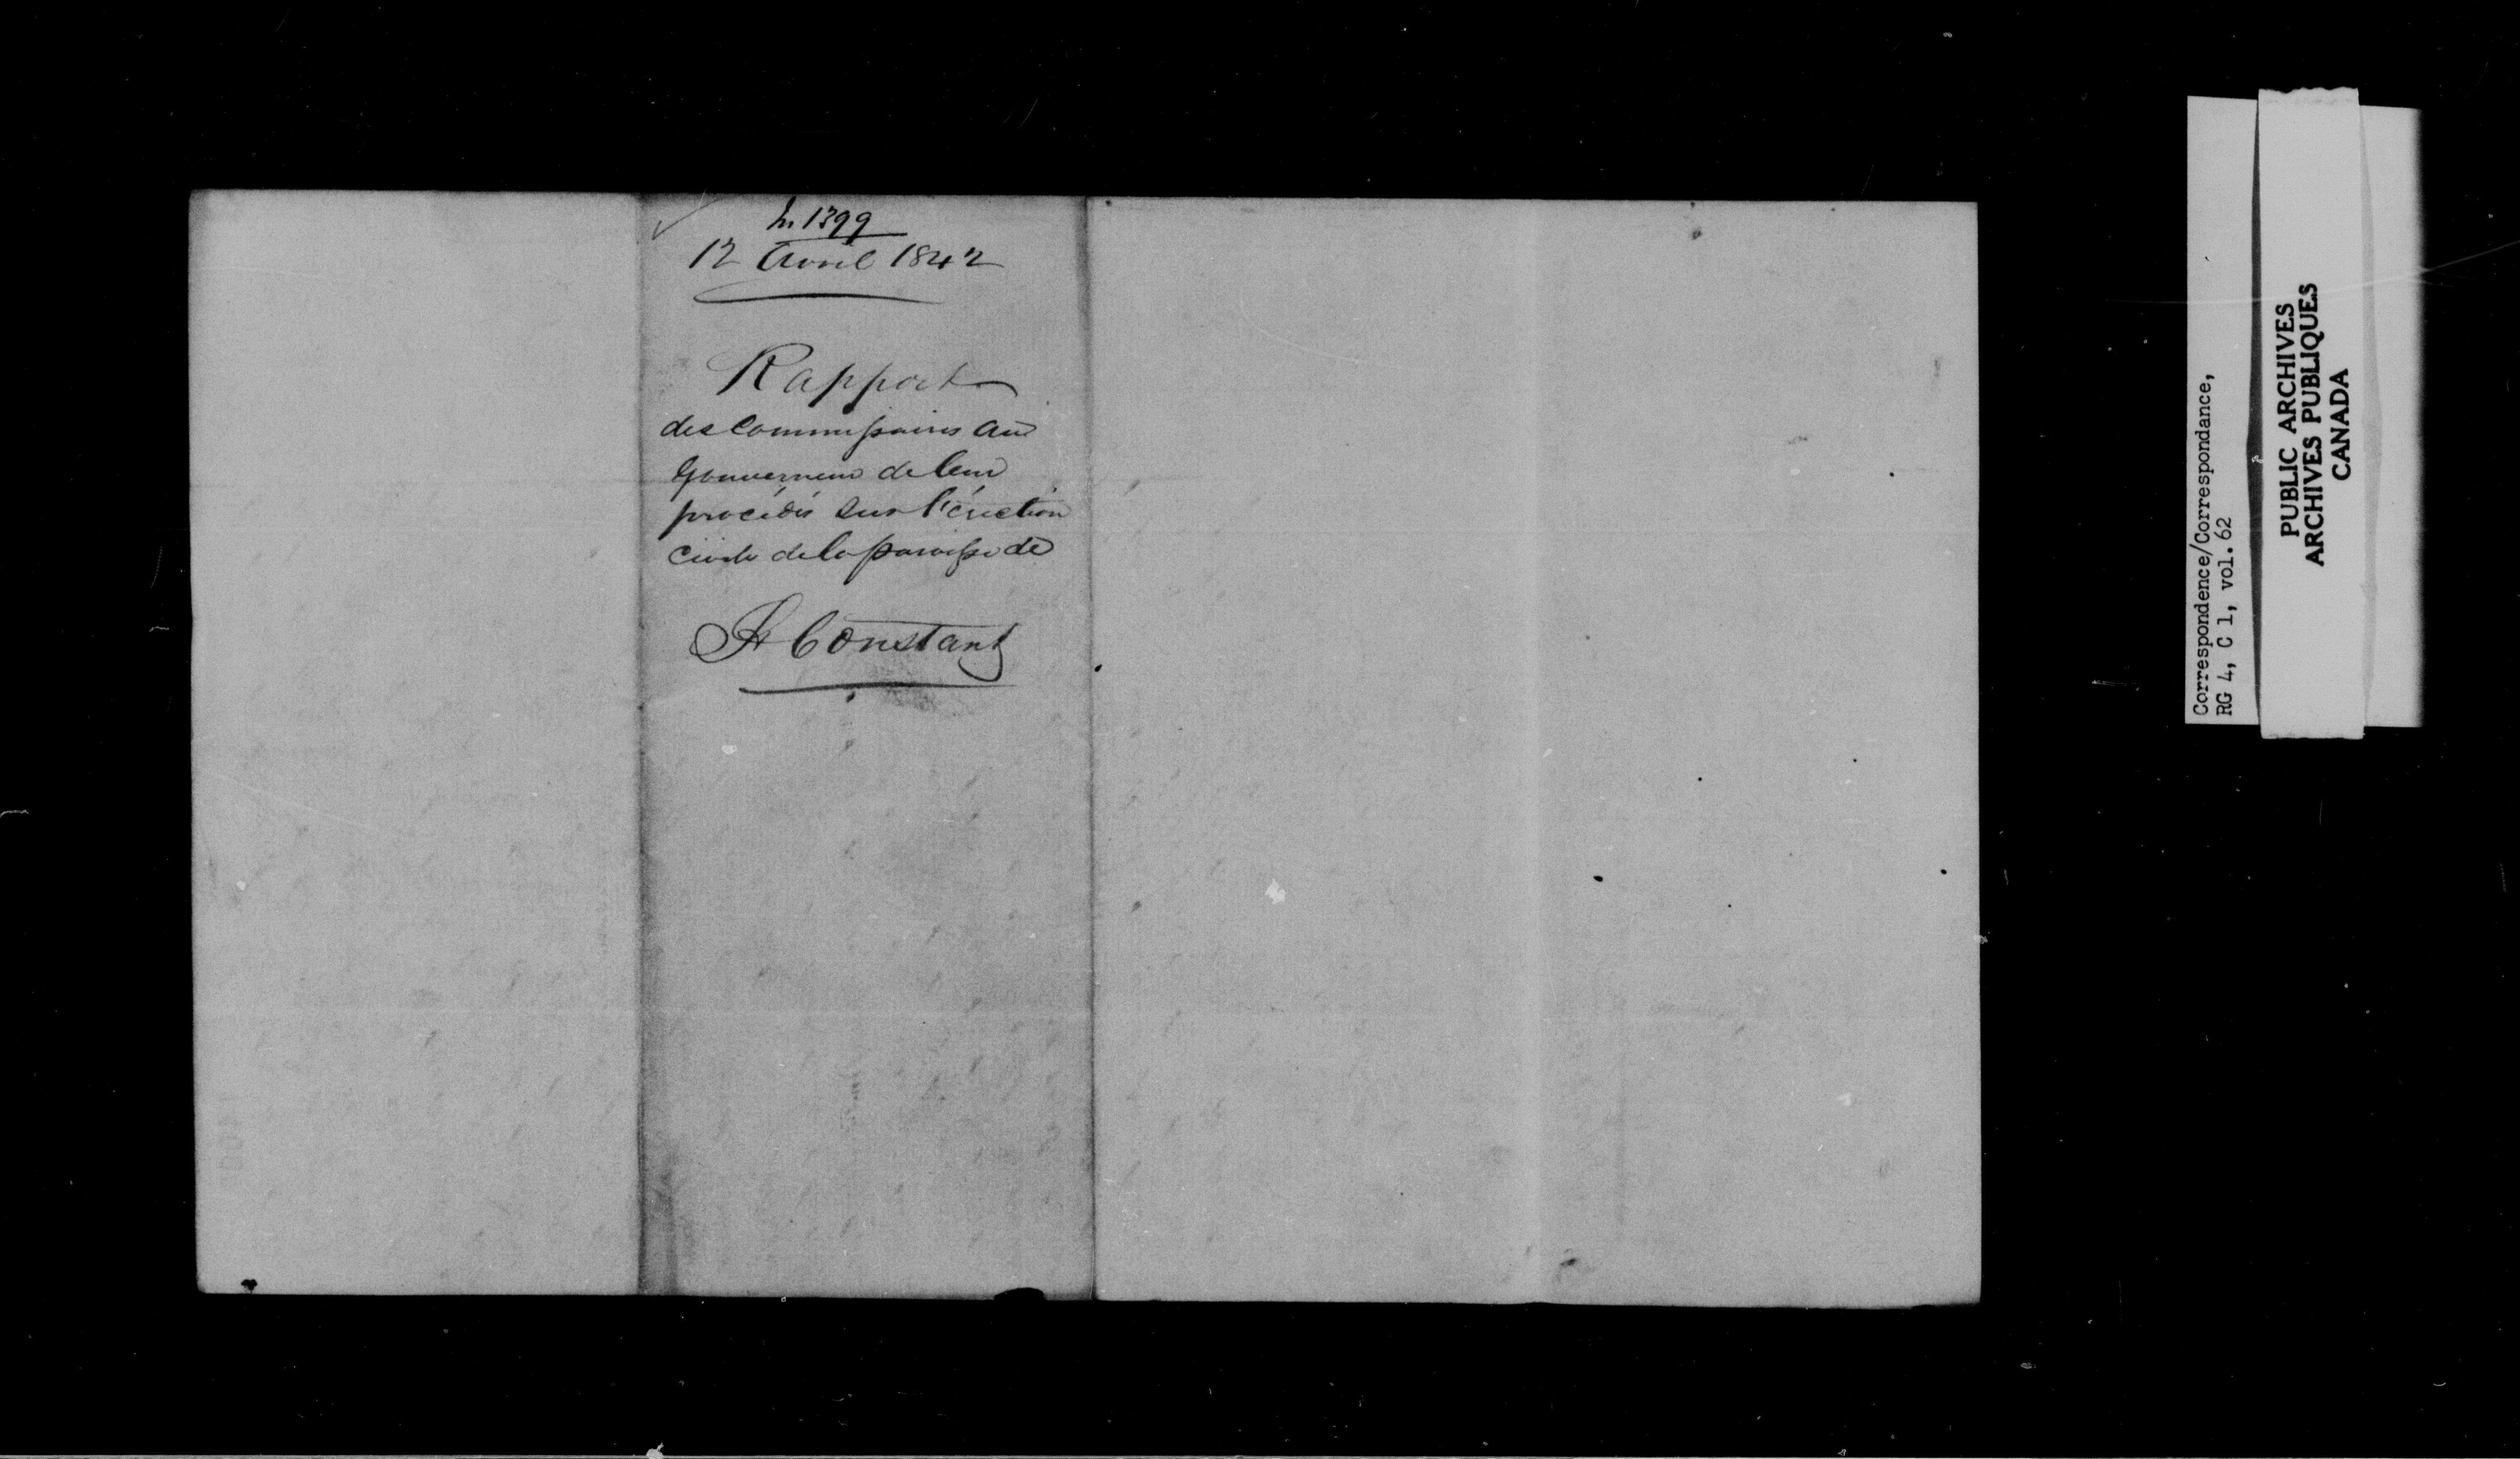 No 1399
12 Avril 1842
Rapport
des Commissaires au
Gouverneur de leur
procédés sur l'érection
Civile de la paroisse de
St Constant
Correspondence/Correspondance,
RG 4, C 1, vol. 62
PUBLIC ARCHIVES
ARCHIVES PUBLIQUES
CANADA